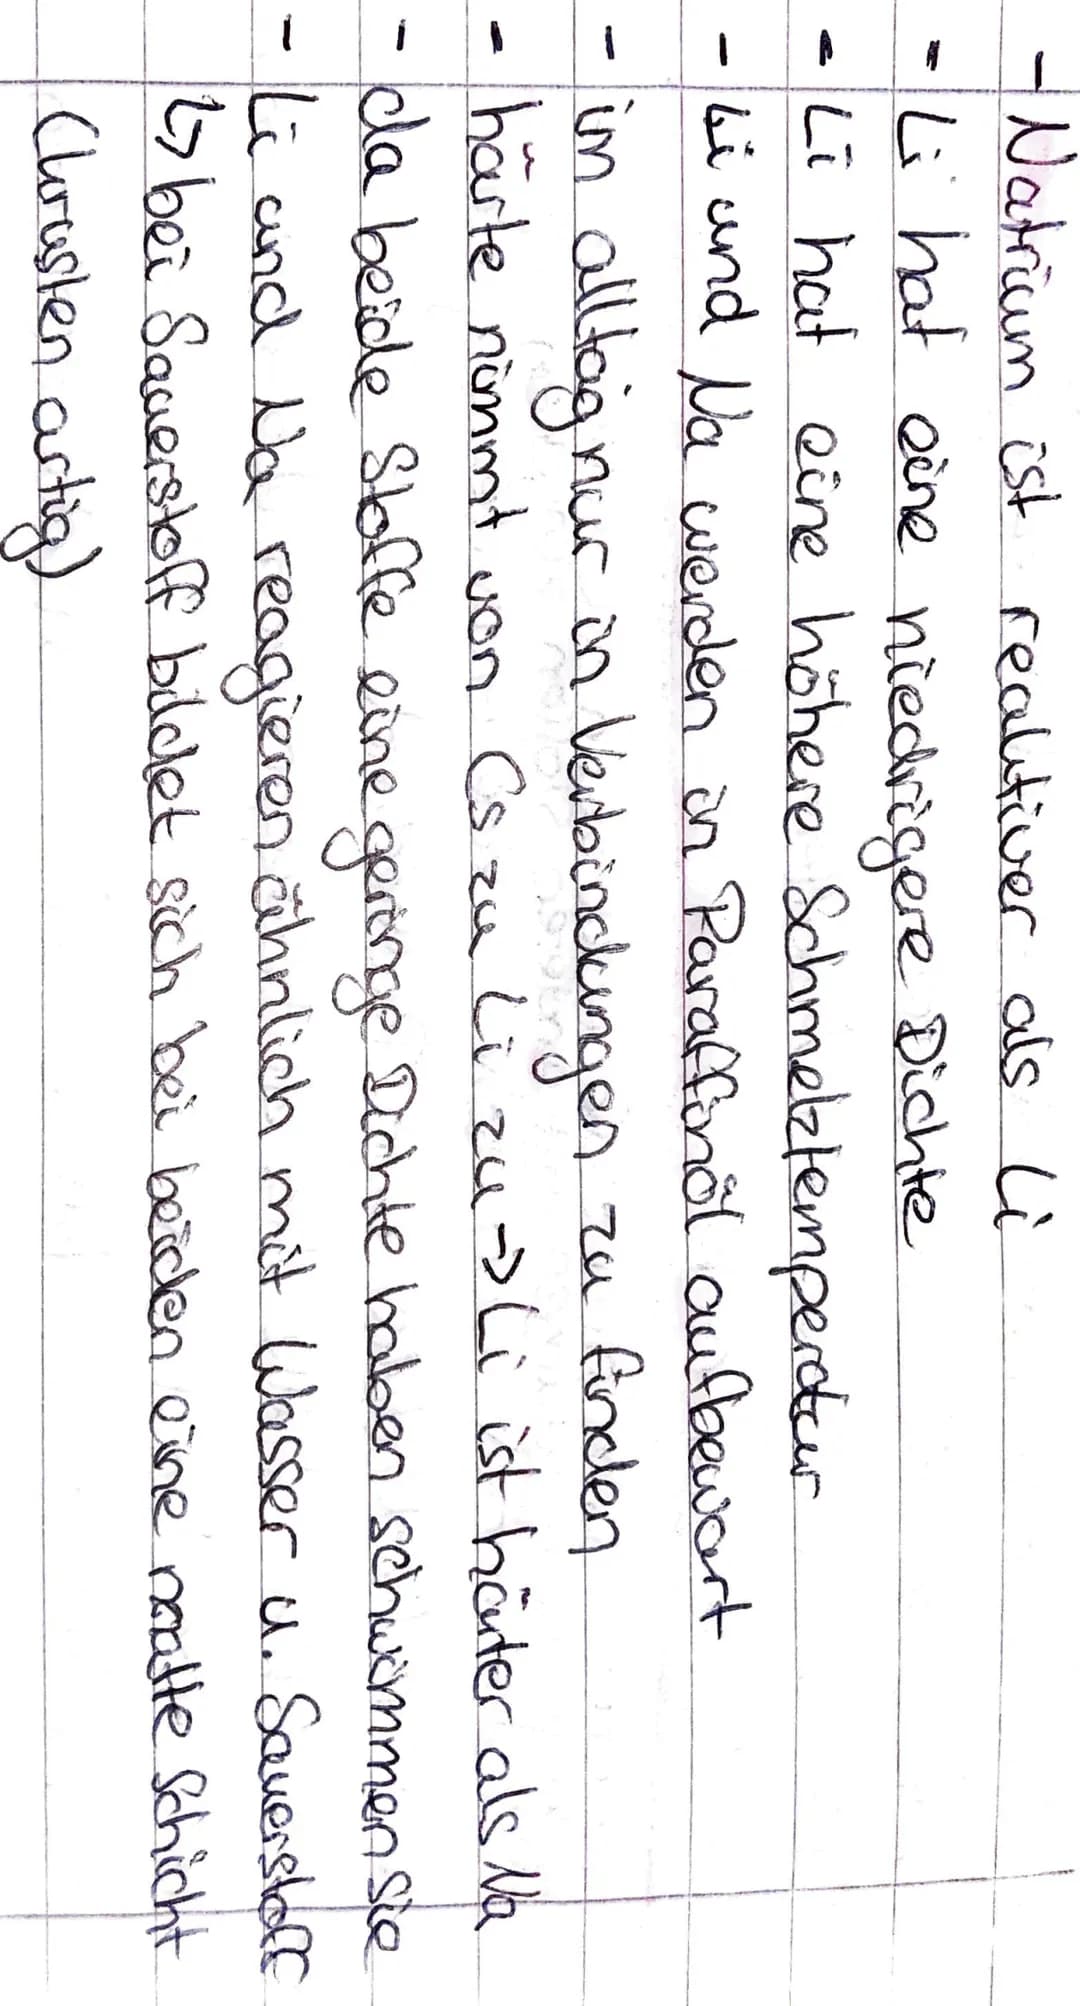 - Natrium ist reaktiver als Li
- Li hat eine niedrigere Dichte
- Li hat eine höhere Schmelztemperatur
- Li und Na werden in Paraffinöl aufbewart
- im alltag nur in Verbindungen zu finden
- härte nimmt von Cs zu Li zu → Li ist härter als Na
- da beide Stoffe eine geringe Dichte haben schwimmen Sie
- Li und Na reagieren ähnlich mit Wasser u. Sauerstoff
↳ bei Sauerstoff bildet sich bei beiden eine matte Schicht
(krusten artig)